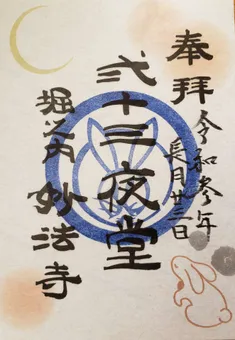 奉拝
令和参年
長月廿三日
弐十三夜堂
堀之内
妙法寺